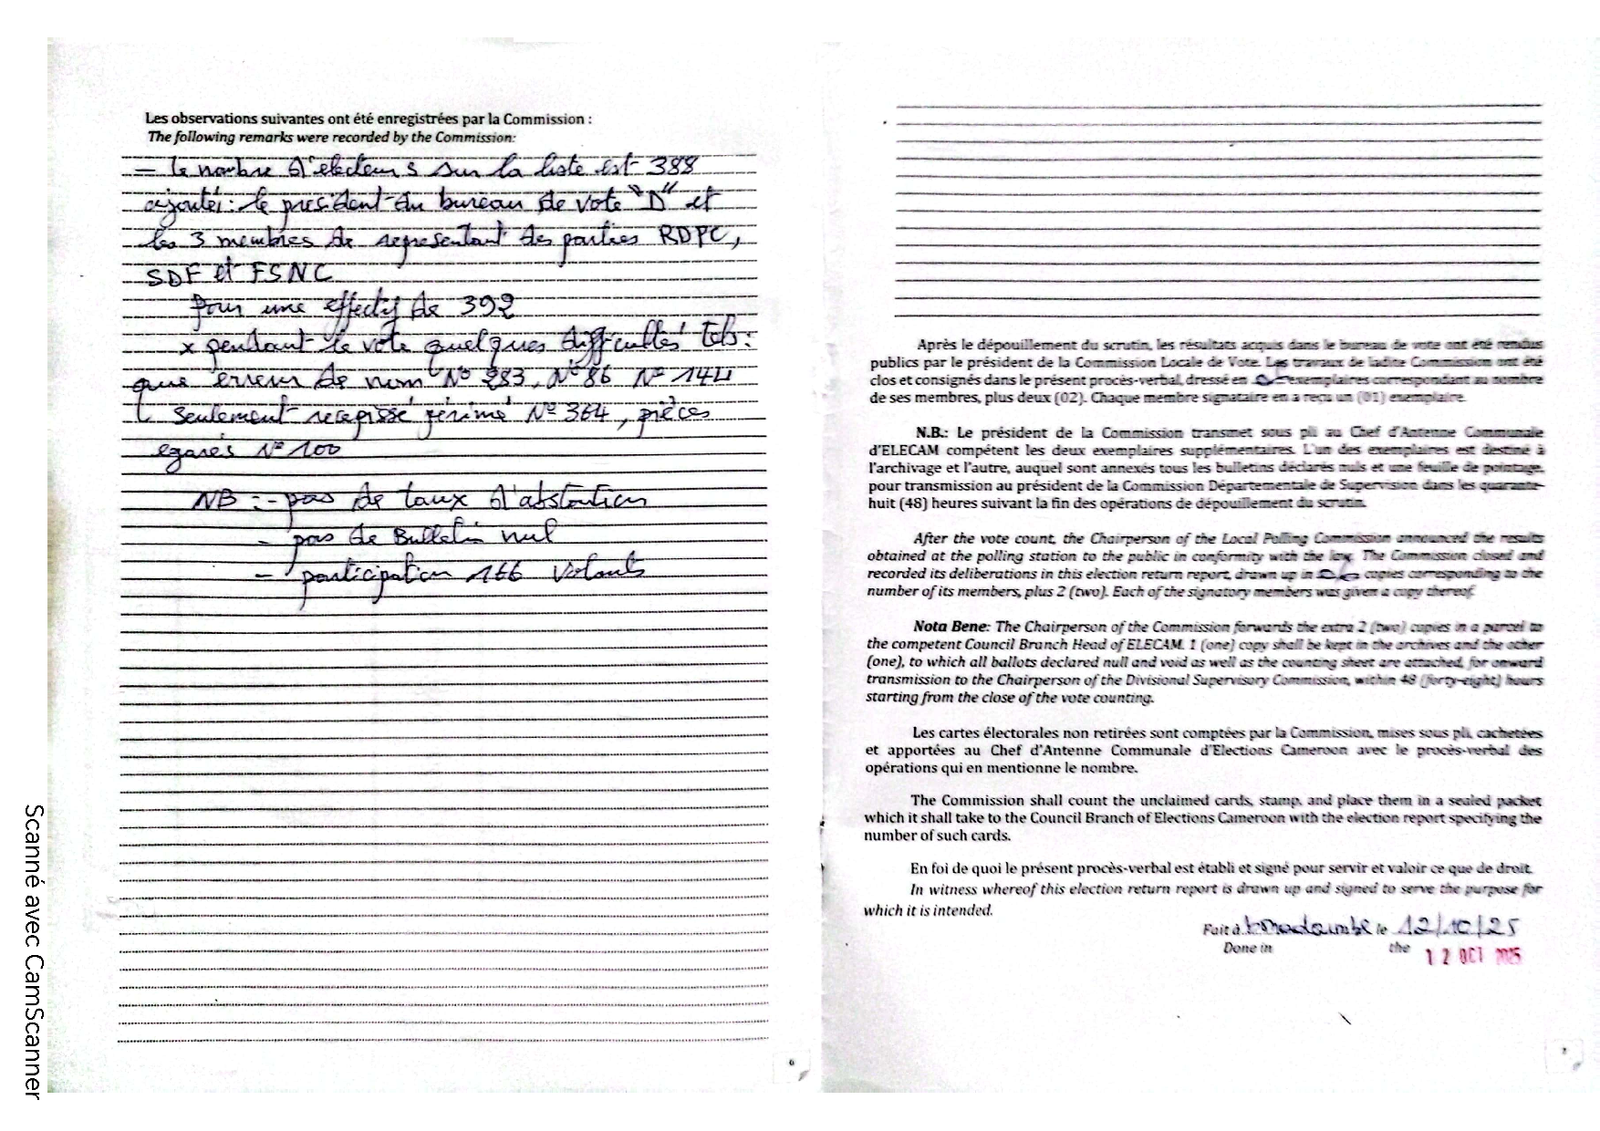 Les observations suivantes ont été enregistrées par la Commission :
The following remarks were recorded by the Commission:
– le nombre d'électeurs sur la liste est 388
ajoutés : le président du bureau de vote "D" et
les 3 membres de representant des parties RDPC,
SDF et FSNC
pour une effectif de 392
x pendant le vote quelques difficultés tels :
que erreur de nom N° 283, N° 86 N° 144
seulement recepissé périmé N° 364, pièces
egarés N° 100
NB : - pas de taux d'abstention
- pas de Bulletin nul
- participation 166 votants
6
Après le dépouillement du scrutin, les résultats acquis dans le bureau de vote ont été rendus
publics par le président de la Commission Locale de Vote. Les travaux de ladite Commission ont été
clos et consignés dans le présent procès-verbal, dressé en exemplaires correspondant au nombre
de ses membres, plus deux (02). Chaque membre signataire en a reçu un (01) exemplaire.
N.B.: Le président de la Commission transmet sous pli au Chef d'Antenne Communale
d'ELECAM compétent les deux exemplaires supplémentaires. L'un des exemplaires est destiné à
l'archivage et l'autre, auquel sont annexés tous les bulletins déclarés nuls et une feuille de pointage,
pour transmission au président de la Commission Départementale de Supervision dans les quarante-
huit (48) heures suivant la fin des opérations de dépouillement du scrutin.
After the vote count, the Chairperson of the Local Polling Commission announced the results
obtained at the polling station to the public in conformity with the law. The Commission closed and
recorded its deliberations in this election return report, drawn up in copies corresponding to the
number of its members, plus 2 (two). Each of the signatory members was given a copy thereof.
Nota Bene: The Chairperson of the Commission forwards the extra 2 (two) copies in a parcel to
the competent Council Branch Head of ELECAM. 1 (one) copy shall be kept in the archives and the other
(one), to which all ballots declared null and void as well as the counting sheet are attached, for onward
transmission to the Chairperson of the Divisional Supervisory Commission, within 48 (forty-eight) hours
starting from the close of the vote counting.
Les cartes électorales non retirées sont comptées par la Commission, mises sous pli, cachetées
et apportées au Chef d'Antenne Communale d'Elections Cameroon avec le procès-verbal des
opérations qui en mentionne le nombre.
The Commission shall count the unclaimed cards, stamp, and place them in a sealed packet
which it shall take to the Council Branch of Elections Cameroon with the election report specifying the
number of such cards.
En foi de quoi le présent procès-verbal est établi et signé pour servir et valoir ce que de droit.
In witness whereof this election return report is drawn up and signed to serve the purpose for
which it is intended.
Fait à le 12/10/25
Done in the 12 OCT 2025
7
Scanné avec CamScanner